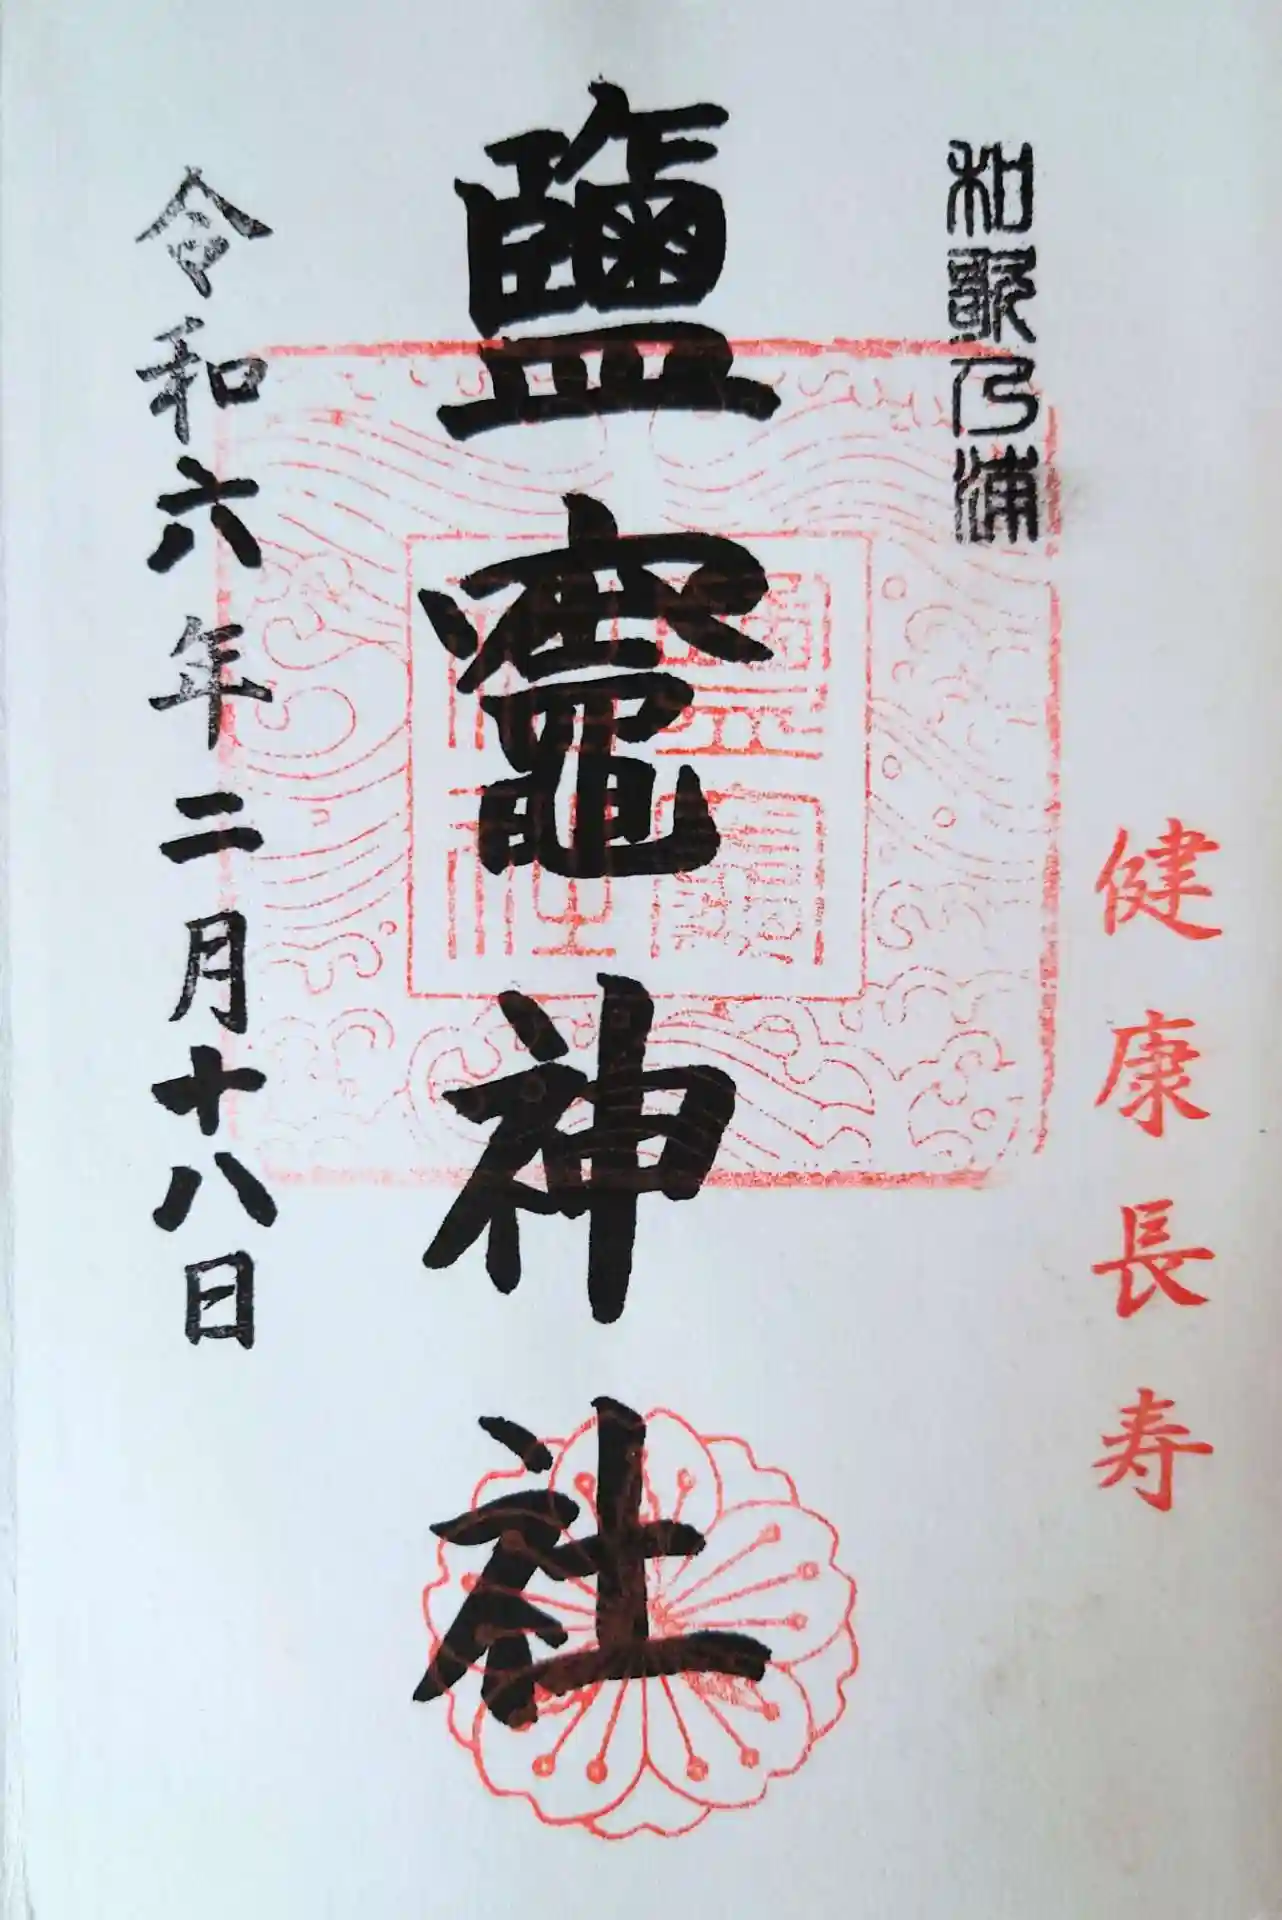 健康長寿
和歌乃浦
鹽竈神社
鹽竈
神社
令和六年二月十八日